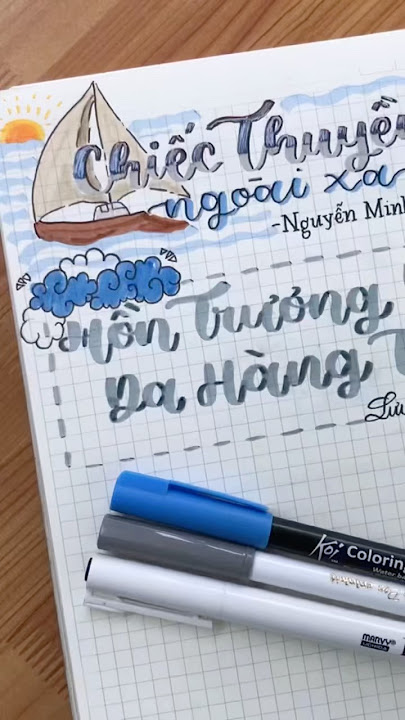 Chiếc Thuyền
ngoài xa
-Nguyễn Minh
Hồn Trương
Da Hàng T
Lưu
Koi Coloring
Water b
MARVY
UCHIDA